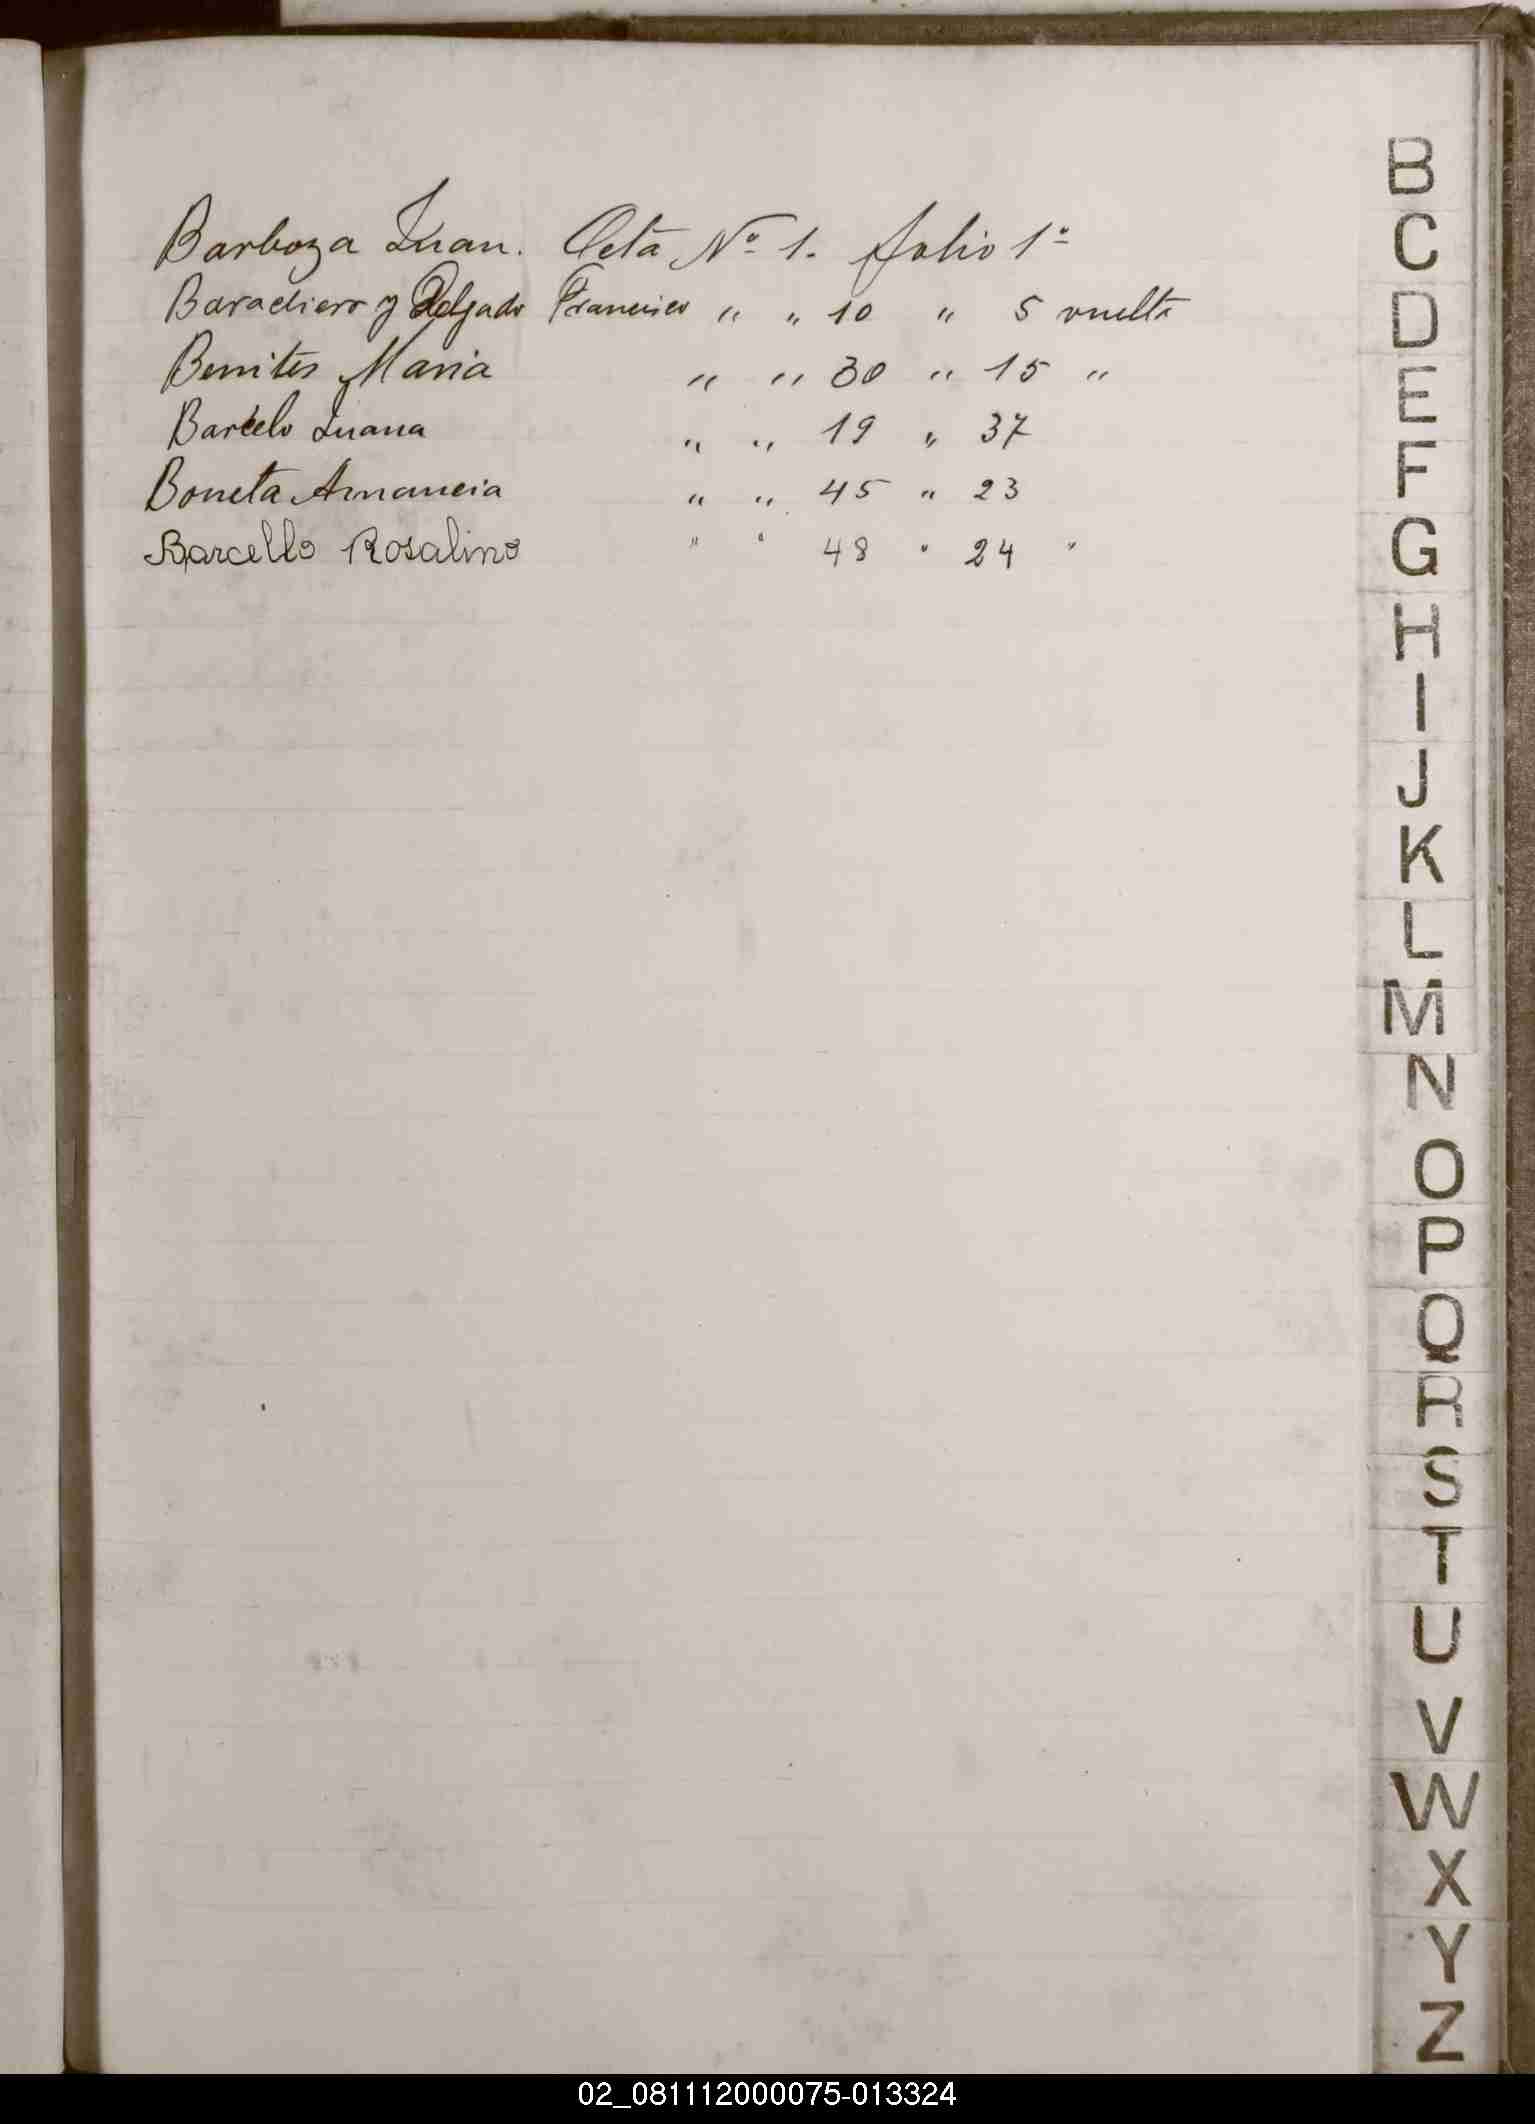 Barboza Juan. Acta Nº 1. folio 1º
Baradiero y Delgado Francisco " " 10 " 5 vuelta
Benites Maria " " 30 " 15 "
Barcelo Juana " " 19 " 37
Boneta Amancia " " 45 " 23
Barcello Rosalino " " 48 " 24 "
B
C
D
E
F
G
H
I
J
K
L
M
N
O
P
Q
R
S
T
U
V
W
X
Y
Z
02_081112000075-013324